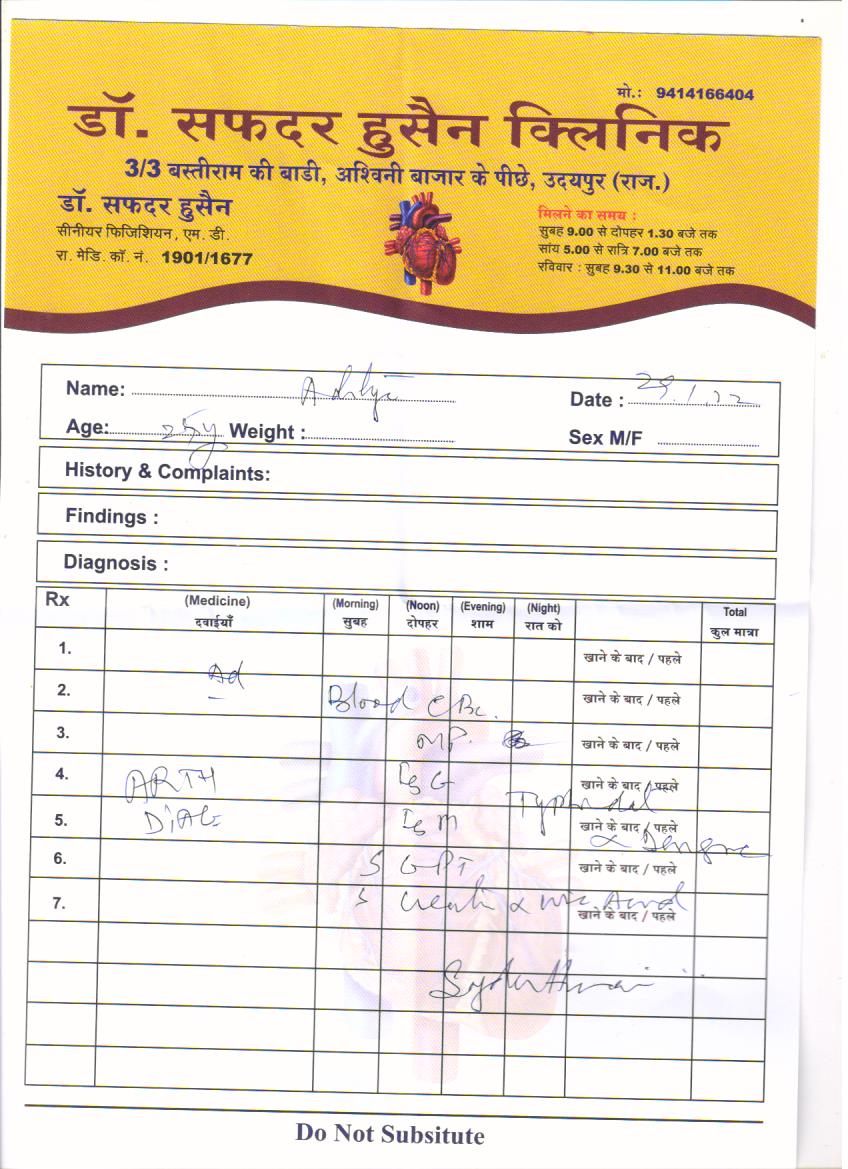 मो.: 9414166404
डॉ. सफदर हुसैन क्लिनिक
3/3 बस्तीराम की बाडी, अश्विनी बाजार के पीछे, उदयपुर (राज.)
डॉ. सफदर हुसैन
सीनीयर फिजिशियन, एम. डी.
रा. मेडि. कॉ. नं. 1901/1677
मिलने का समय :
सुबह 9.00 से दोपहर 1.30 बजे तक
सांय 5.00 से रात्रि 7.00 बजे तक
रविवार : सुबह 9.30 से 11.00 बजे तक
Name: Aditya Date : 29.1.22
Age: 25y Weight : Sex M/F
History & Complaints:
Findings :
Diagnosis :
Rx (Medicine) (Morning) (Noon) (Evening) (Night) Total
दवाईयाँ सुबह दोपहर शाम रात को कुल मात्रा
1. खाने के बाद / पहले
Ad
2. Blood CBC. खाने के बाद / पहले
3. MP. खाने के बाद / पहले
4. ARTH IgG खाने के बाद / पहले
Typhidal
5. DiAG IgM खाने के बाद / पहले
& Dengue
6. S GPT खाने के बाद / पहले
7. S Creati & uric Acid खाने के बाद / पहले
Do Not Subsitute